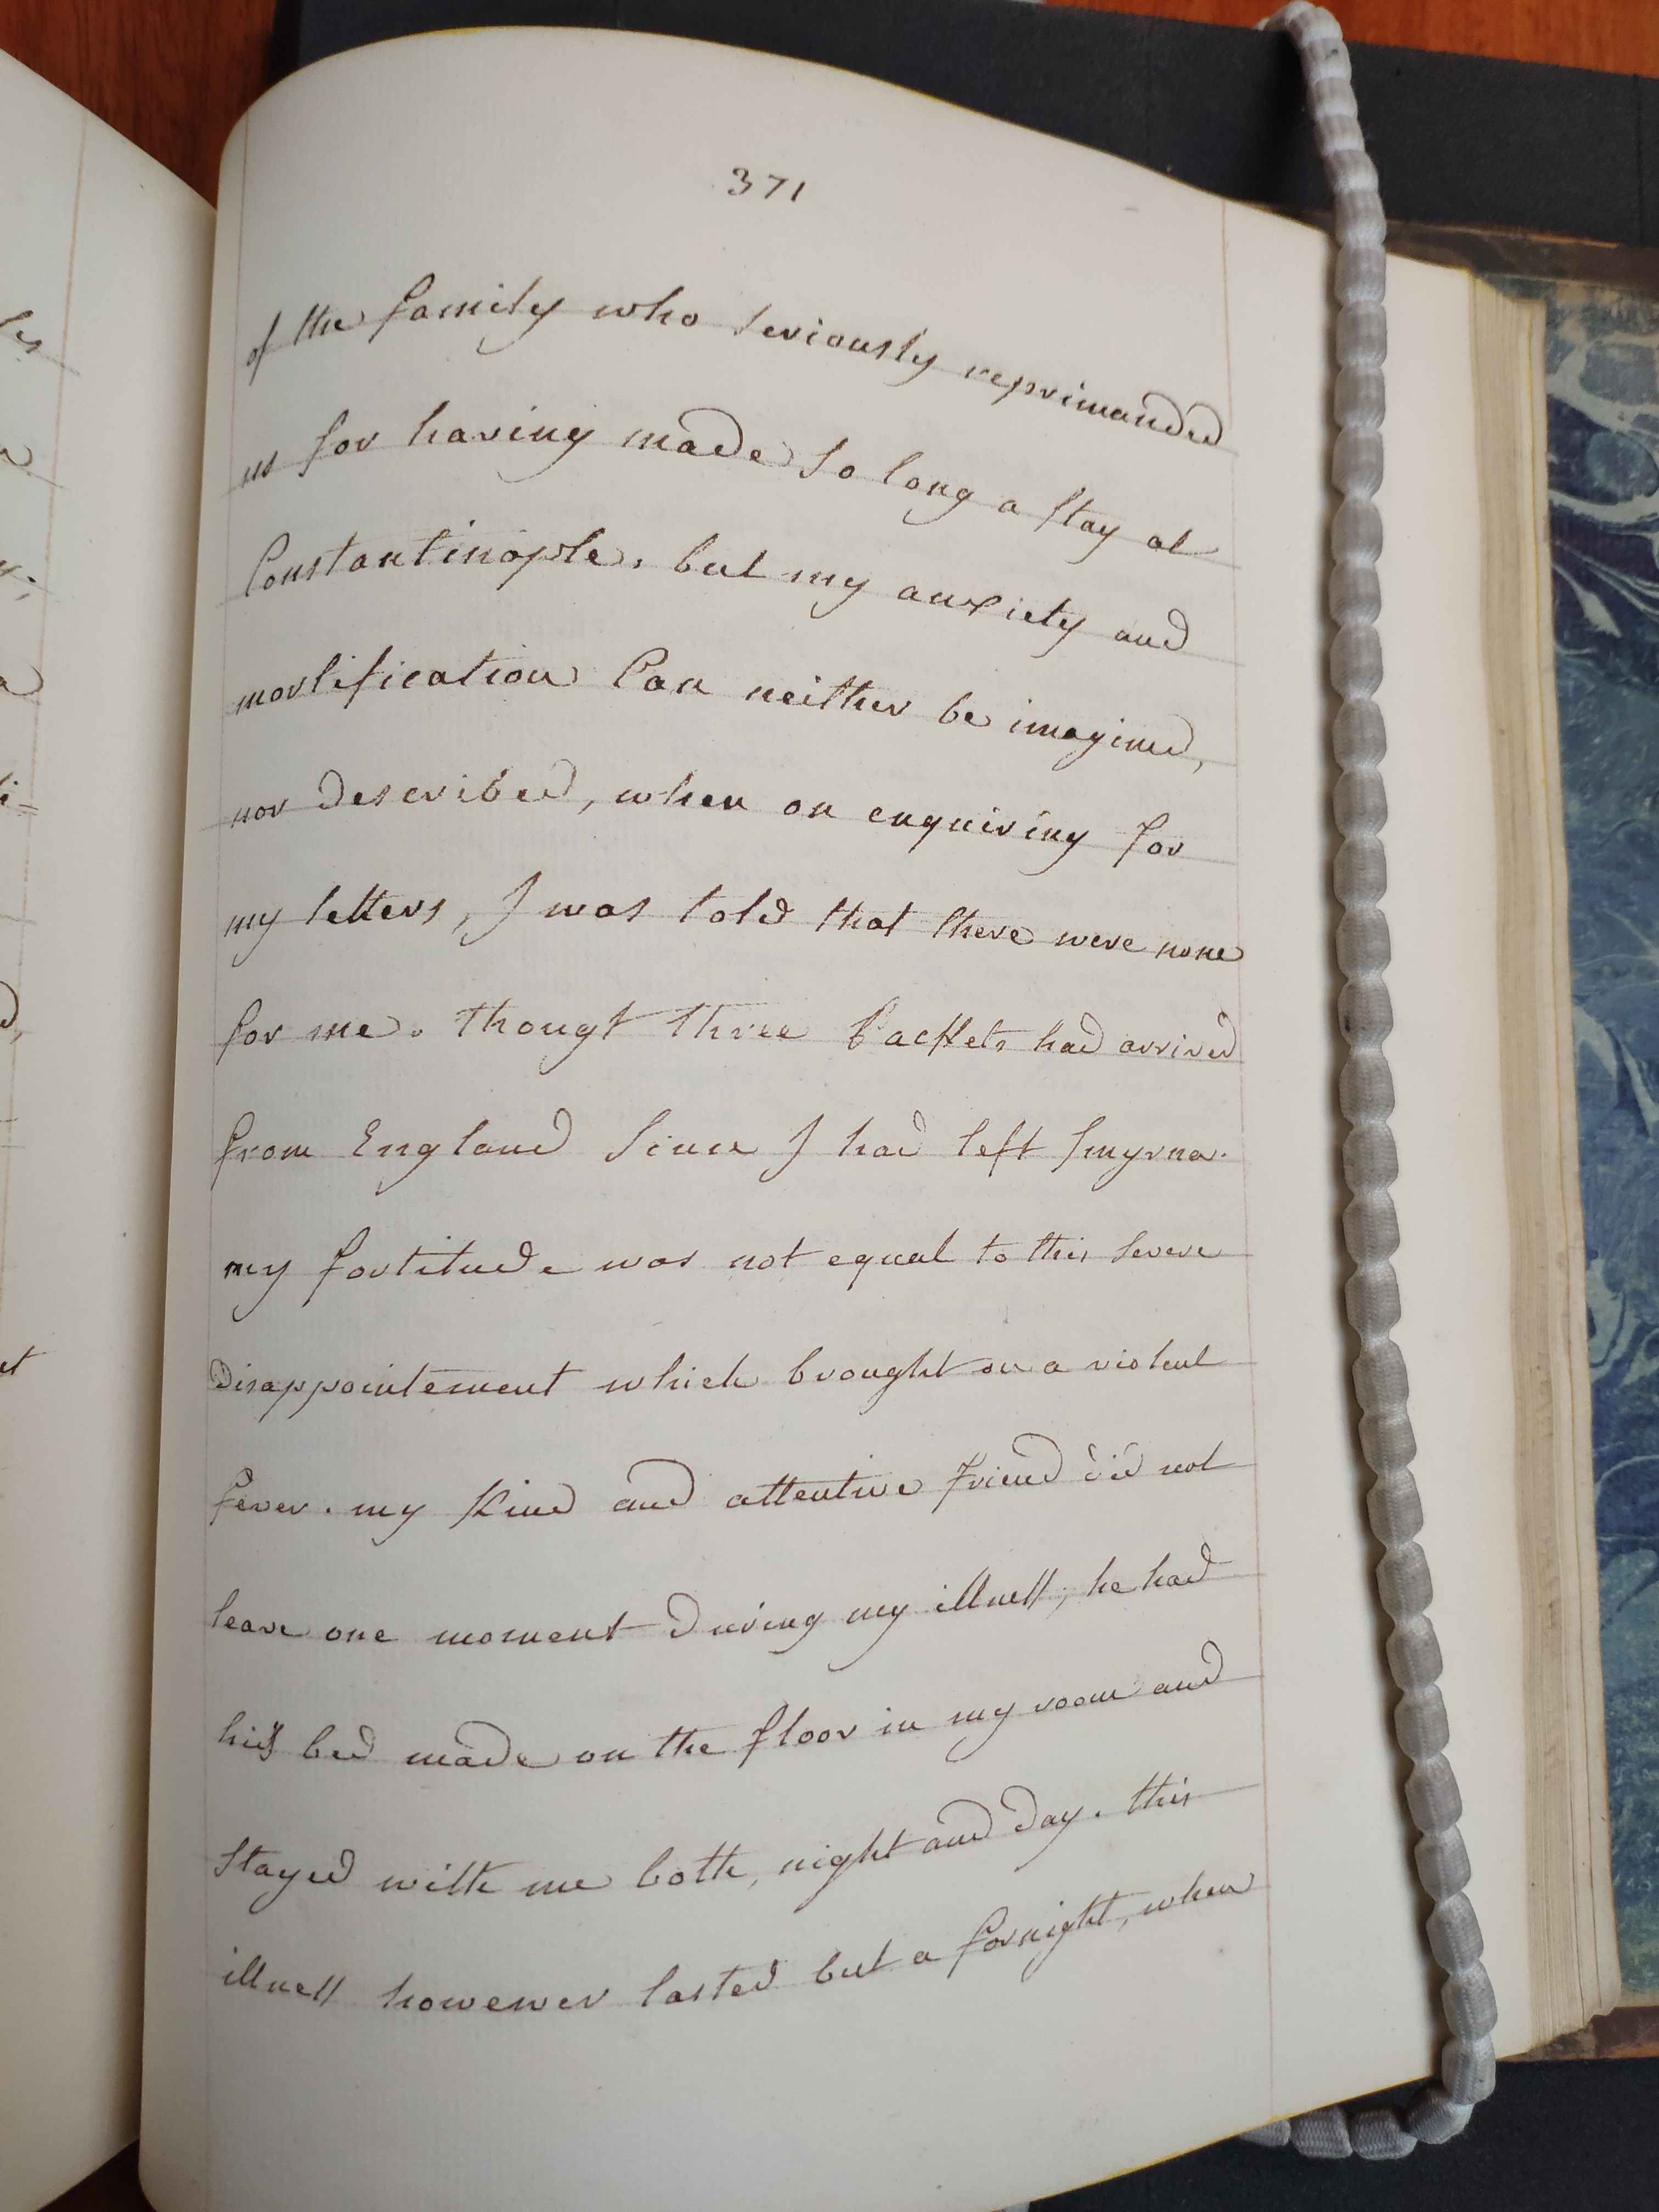 371
of the family who seriously reprimanded
us for having made so long a stay at
Constantinople, but my anxiety and
mortification Can neither be imagined,
nor described, when on enquiring for
my letters, I was told that there were none
for me. thougt three Packets had arrived
from England Since I had left Smyrna.
my fortitude was not equal to this severe
disappointement which brought on a violent
fever. my Kind and attentive friend did not
leave one moment during my illness; he had
his bed made on the floor in my room and
stayed with me both, night and day. this
illness howewer lasted but a fornight, when